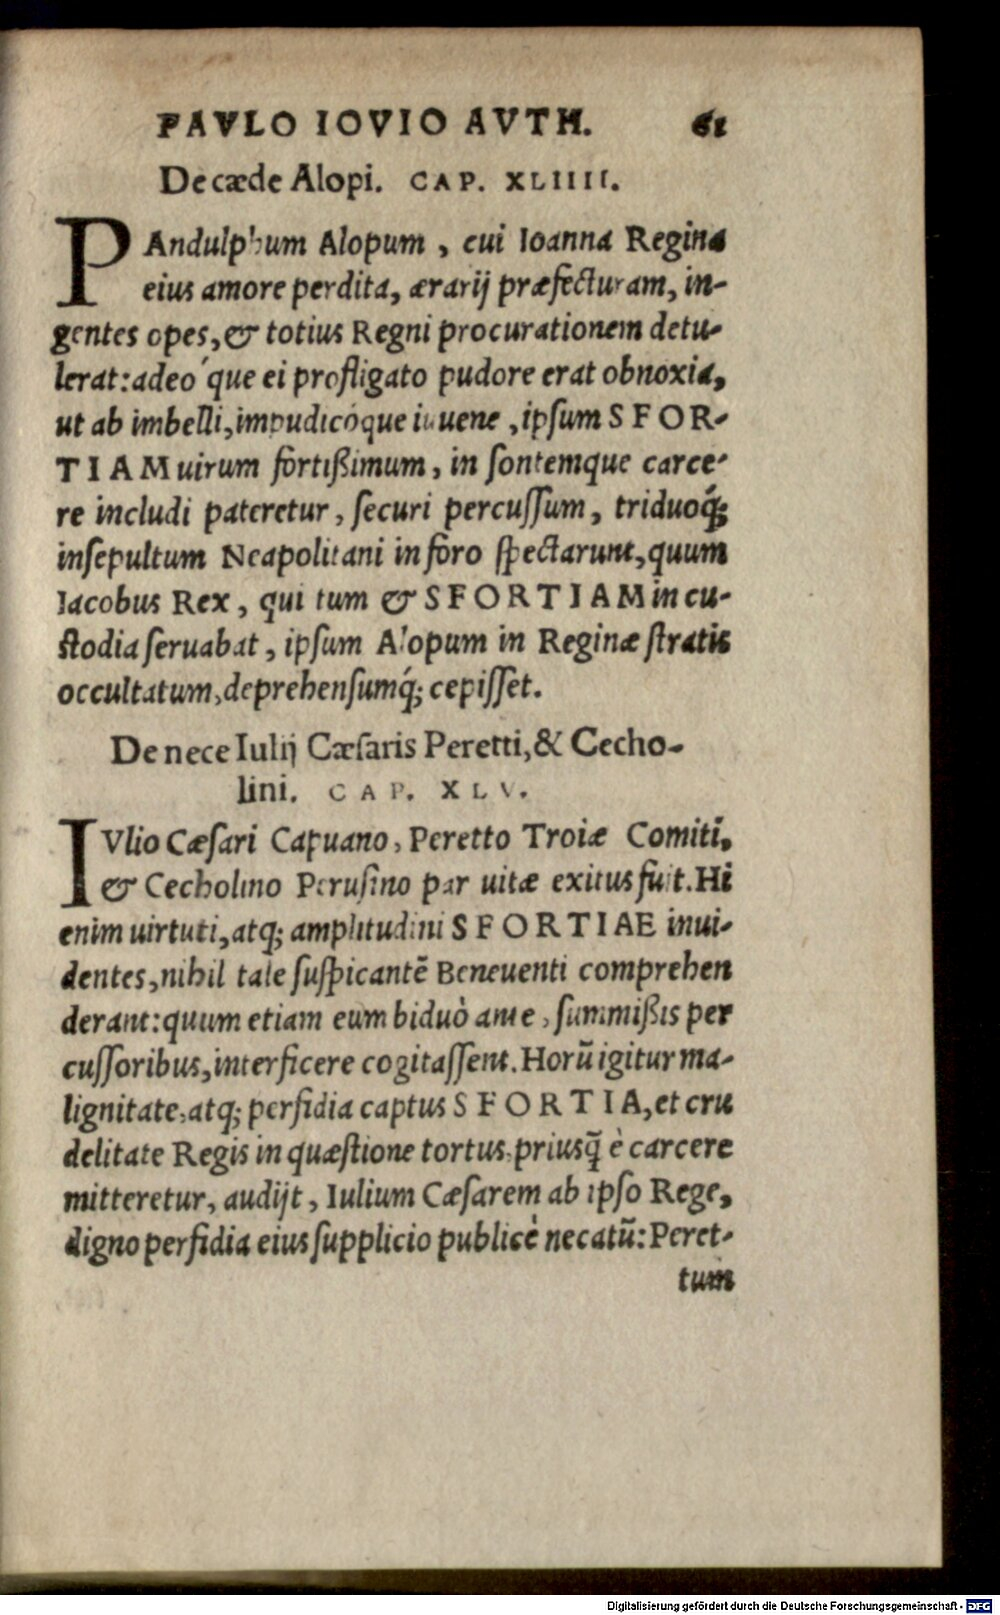 PAVLO IOVIO AVTH. 61
De cæde Alopi. CAP. XLIIII.
PAndulphum Alopum, cui Ioanna Regina
eius amore perdita, ærarij præfecturam, in-
gentes opes, & totius Regni procurationem detu-
lerat: adeó que ei profligato pudore erat obnoxia,
ut ab imbelli, impudicóque iuuene, ipsum SFOR-
TIAM uirum fortißimum, in sontemque carce-
re includi pateretur, securi percussum, triduoq́;
insepultum Neapolitani in foro spectarunt, quum
Iacobus Rex, qui tum & SFORTIAM in cu-
stodia seruabat, ipsum Alopum in Reginæ stratis
occultatum, deprehensumq́; cepisset.
De nece Iulij Cæsaris Peretti, & Cecho-
lini. CAP. XLV.
IVlio Cæsari Capuano, Peretto Troiæ Comiti,
& Cecholino Perusino par uitæ exitus fuit. Hi
enim uirtuti, atq; amplitudini SFORTIAE inui-
dentes, nihil tale suspicantē Beneuenti comprehen
derant: quum etiam eum biduò ante, summißis per
cussoribus, interficere cogitassent. Horū igitur ma-
lignitate, atq; perfidia captus SFORTIA, et cru
delitate Regis in quæstione tortus, priusq̄ è carcere
mitteretur, audijt, Iulium Cæsarem ab ipso Rege,
digno perfidia eius supplicio publicè necatū: Peret-
tum
Digitalisierung gefördert durch die Deutsche Forschungsgemeinschaft - DFG